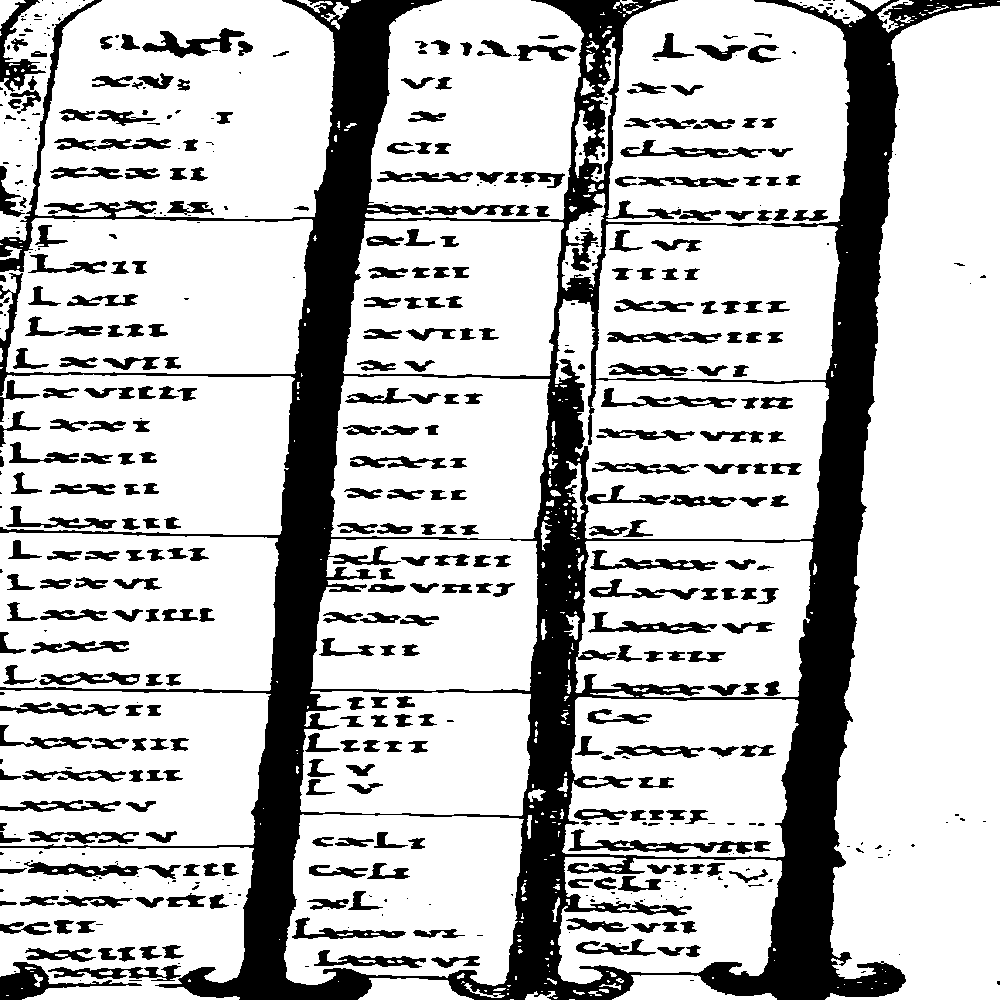 math
xxxi
xxxii
L
Lxii
Lxii
Lxiii
Lxvii
Lxviiii
Lxxi
Lxxii
Lxxii
Lxxiii
Lxxiiii
Lxxvi
Lxxviiii
Lxxx
Lxxxii
Lxxxii
Lxxxiii
Lxxxiii
Lxxxv
Lxxxv
Lxxxviii
Lxxxviii
xcii
xciiii
xciiii
marc
vi
x
cii
xxxviiij
xxxviiii
xLi
xiii
xiii
xviii
xv
xLvii
xxi
xxii
xxii
xxiii
xLviiii
Liii
xxviiij
xxx
Liii
Liii
Liiii
Liiii
Lv
Lv
cxLi
cxLi
xL
Lxxxvi
Lxxxvi
Luc
xv
xxxxii
cLxxxv
cxxxiii
Lxxviiii
Lvi
iiii
xxiiii
xxxxiii
xxvi
Lxxxiii
xxxviii
xxxviiii
cLxxxvi
xL
Lxxxv
cLxviiij
Lxxxvi
xLiiii
Lxxxvii
cx
Lxxxvii
cxii
cxiiii
Lxxxviii
cxLviii
ccLi
Lxxx
xcvii
cxLvi